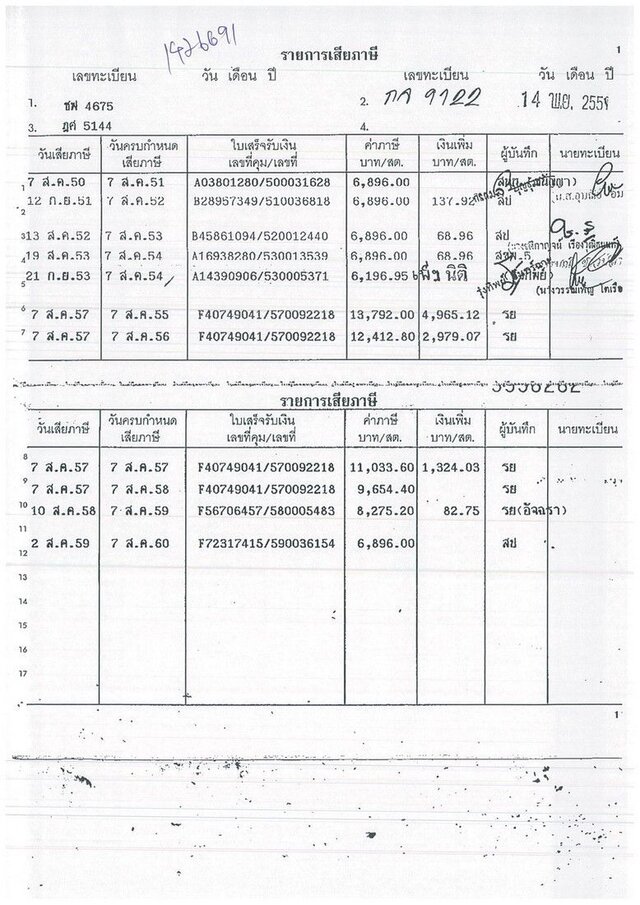 1426691
รายการเสียภาษี 1
เลขทะเบียน วัน เดือน ปี เลขทะเบียน วัน เดือน ปี
1. ชฟ 4675 2. กล 9122 14 พ.ย. 255
3. ฎศ 5144 4.
วันเสียภาษี วันครบกำหนดเสียภาษี ใบเสร็จรับเงิน เลขที่คุม/เลขที่ ค่าภาษี บาท/สต. เงินเพิ่ม บาท/สต. ผู้บันทึก นายทะเบียน
1 7 ส.ค.50 7 ส.ค.51 A03801280/500031628 6,896.00
2 12 ก.ย.51 7 ส.ค.52 B28957349/510036818 6,896.00 137.92 สป
3 13 ส.ค.52 7 ส.ค.53 B45861094/520012440 6,896.00 68.96 สป
4 19 ส.ค.53 7 ส.ค.54 A16938280/530013539 6,896.00 68.96
5 21 ก.ย.53 7 ส.ค.54 A14390906/530005371 6,196.95 เพิ่ง นิติ
6 7 ส.ค.57 7 ส.ค.55 F40749041/570092218 13,792.00 4,965.12 รย
7 7 ส.ค.57 7 ส.ค.56 F40749041/570092218 12,412.80 2,979.07 รย
รายการเสียภาษี
วันเสียภาษี วันครบกำหนดเสียภาษี ใบเสร็จรับเงิน เลขที่คุม/เลขที่ ค่าภาษี บาท/สต. เงินเพิ่ม บาท/สต. ผู้บันทึก นายทะเบียน
8 7 ส.ค.57 7 ส.ค.57 F40749041/570092218 11,033.60 1,324.03 รย
9 7 ส.ค.57 7 ส.ค.58 F40749041/570092218 9,654.40 รย
10 10 ส.ค.58 7 ส.ค.59 F56706457/580005483 8,275.20 82.75 รย(อัจฉรา)
11 2 ส.ค.59 7 ส.ค.60 F72317415/590036154 6,896.00 สป
12
13
14
15
16
17
1